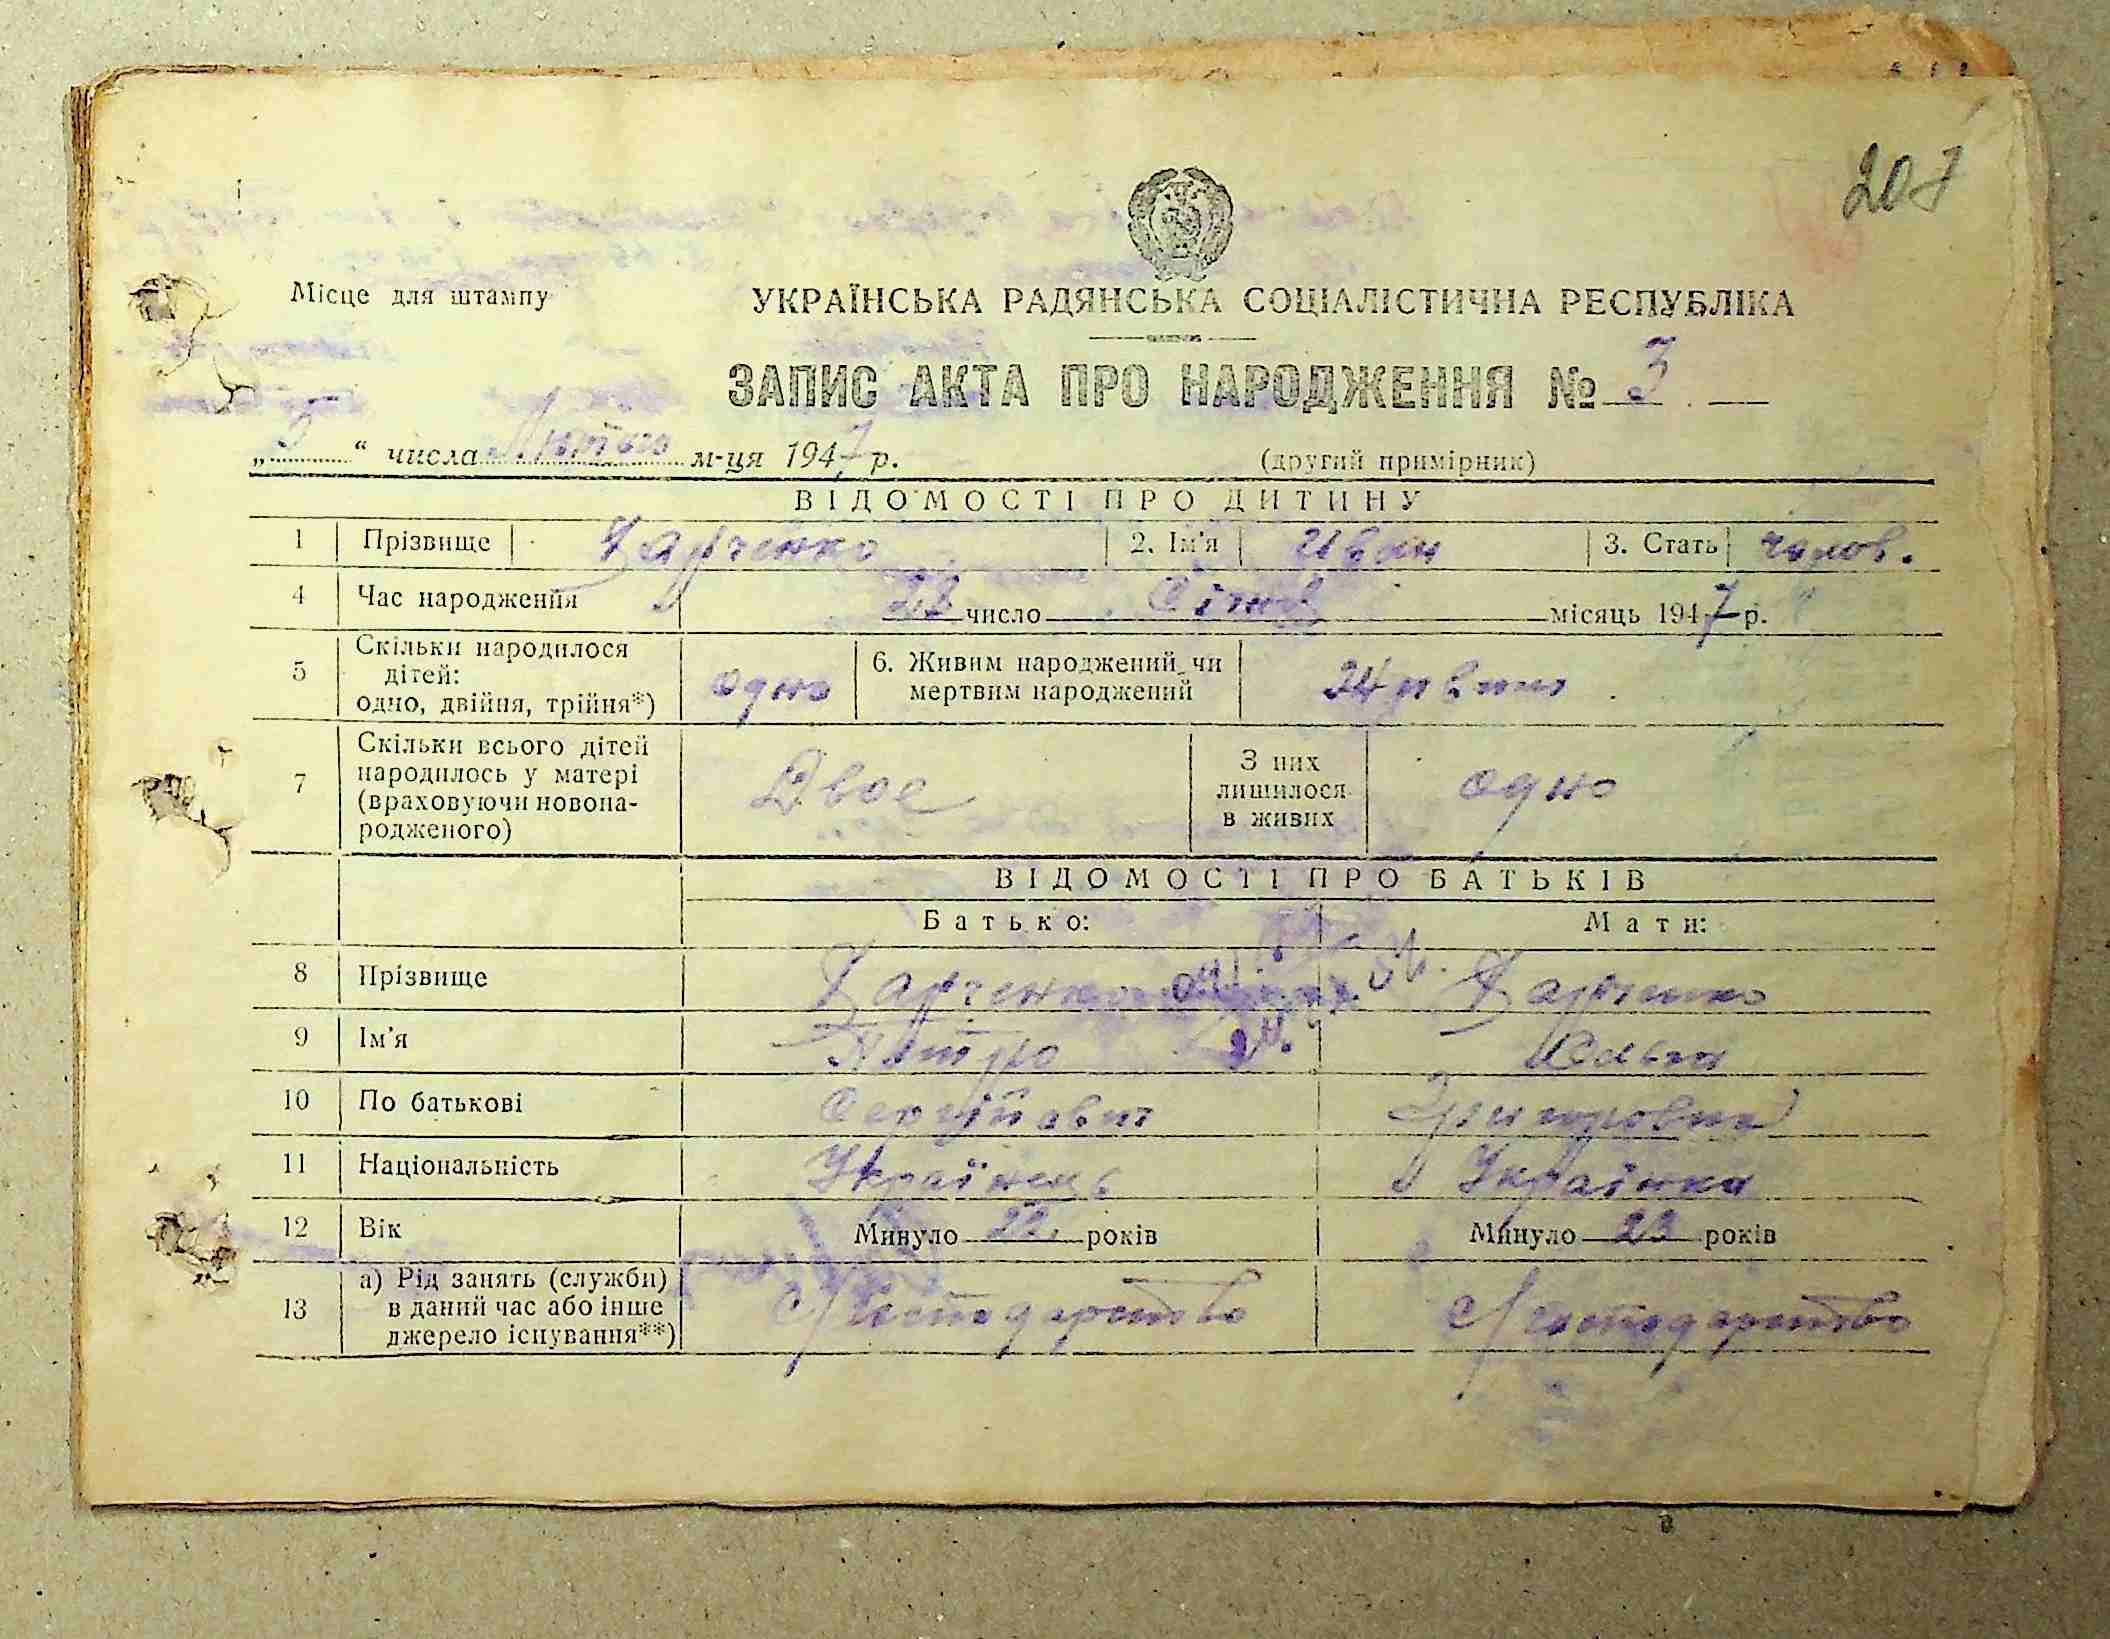 207
Місце для штампу
УКРАЇНСЬКА РАДЯНСЬКА СОЦІАЛІСТИЧНА РЕСПУБЛІКА
ЗАПИС АКТА ПРО НАРОДЖЕННЯ № 3
„5“ числа Лютого м-ця 1947 р. (другий примірник)
ВІДОМОСТІ ПРО ДИТИНУ
1 Прізвище Харченко 2. Ім'я Иван 3. Стать чолов.
4 Час народження число Січня місяць 1947 р.
5 Скільки народилося дітей: одно, двійня, трійня*) одно 6. Живим народжений чи мертвим народжений
7 Скільки всього дітей народилось у матері (враховуючи новонародженого) Двое З них лишилося в живих одно
ВІДОМОСТІ ПРО БАТЬКІВ
Батько: Мати:
8 Прізвище Харченко Харченко
9 Ім'я Петро Ольга
10 По батькові Сергійович Григоровна
11 Національність Українець Українка
12 Вік Минуло 22 років Минуло 23 років
13 а) Рід занять (служби) в даний час або інше джерело існування**) С/господарство С/господарство